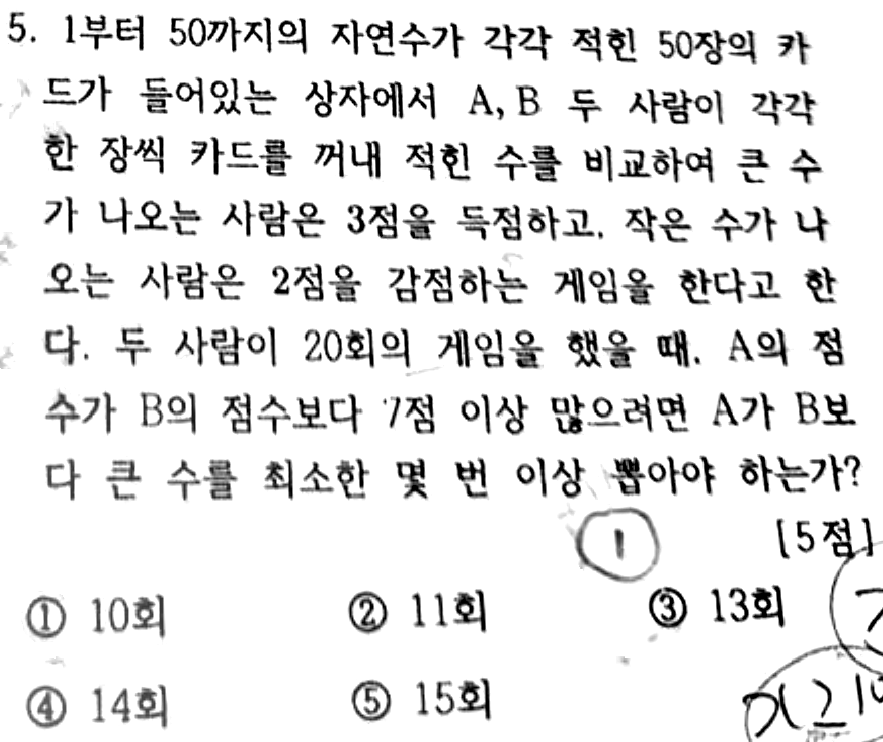 5. 1부터 50까지의 자연수가 각각 적힌 50장의 카
드가 들어있는 상자에서 A, B 두 사람이 각각
한 장씩 카드를 꺼내 적힌 수를 비교하여 큰 수
가 나오는 사람은 3점을 득점하고, 작은 수가 나
오는 사람은 2점을 감점하는 게임을 한다고 한
다. 두 사람이 20회의 게임을 했을 때, A의 점
수가 B의 점수보다 7점 이상 많으려면 A가 B보
다 큰 수를 최소한 몇 번 이상 뽑아야 하는가?
1 [5점]
① 10회 ② 11회 ③ 13회
④ 14회 ⑤ 15회
x ≥ 10